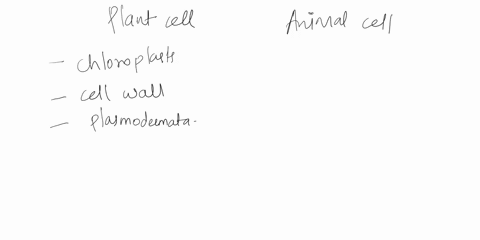 Plant cell Animal cell
- chloroplasts
- cell wall
- plasmodesmata.